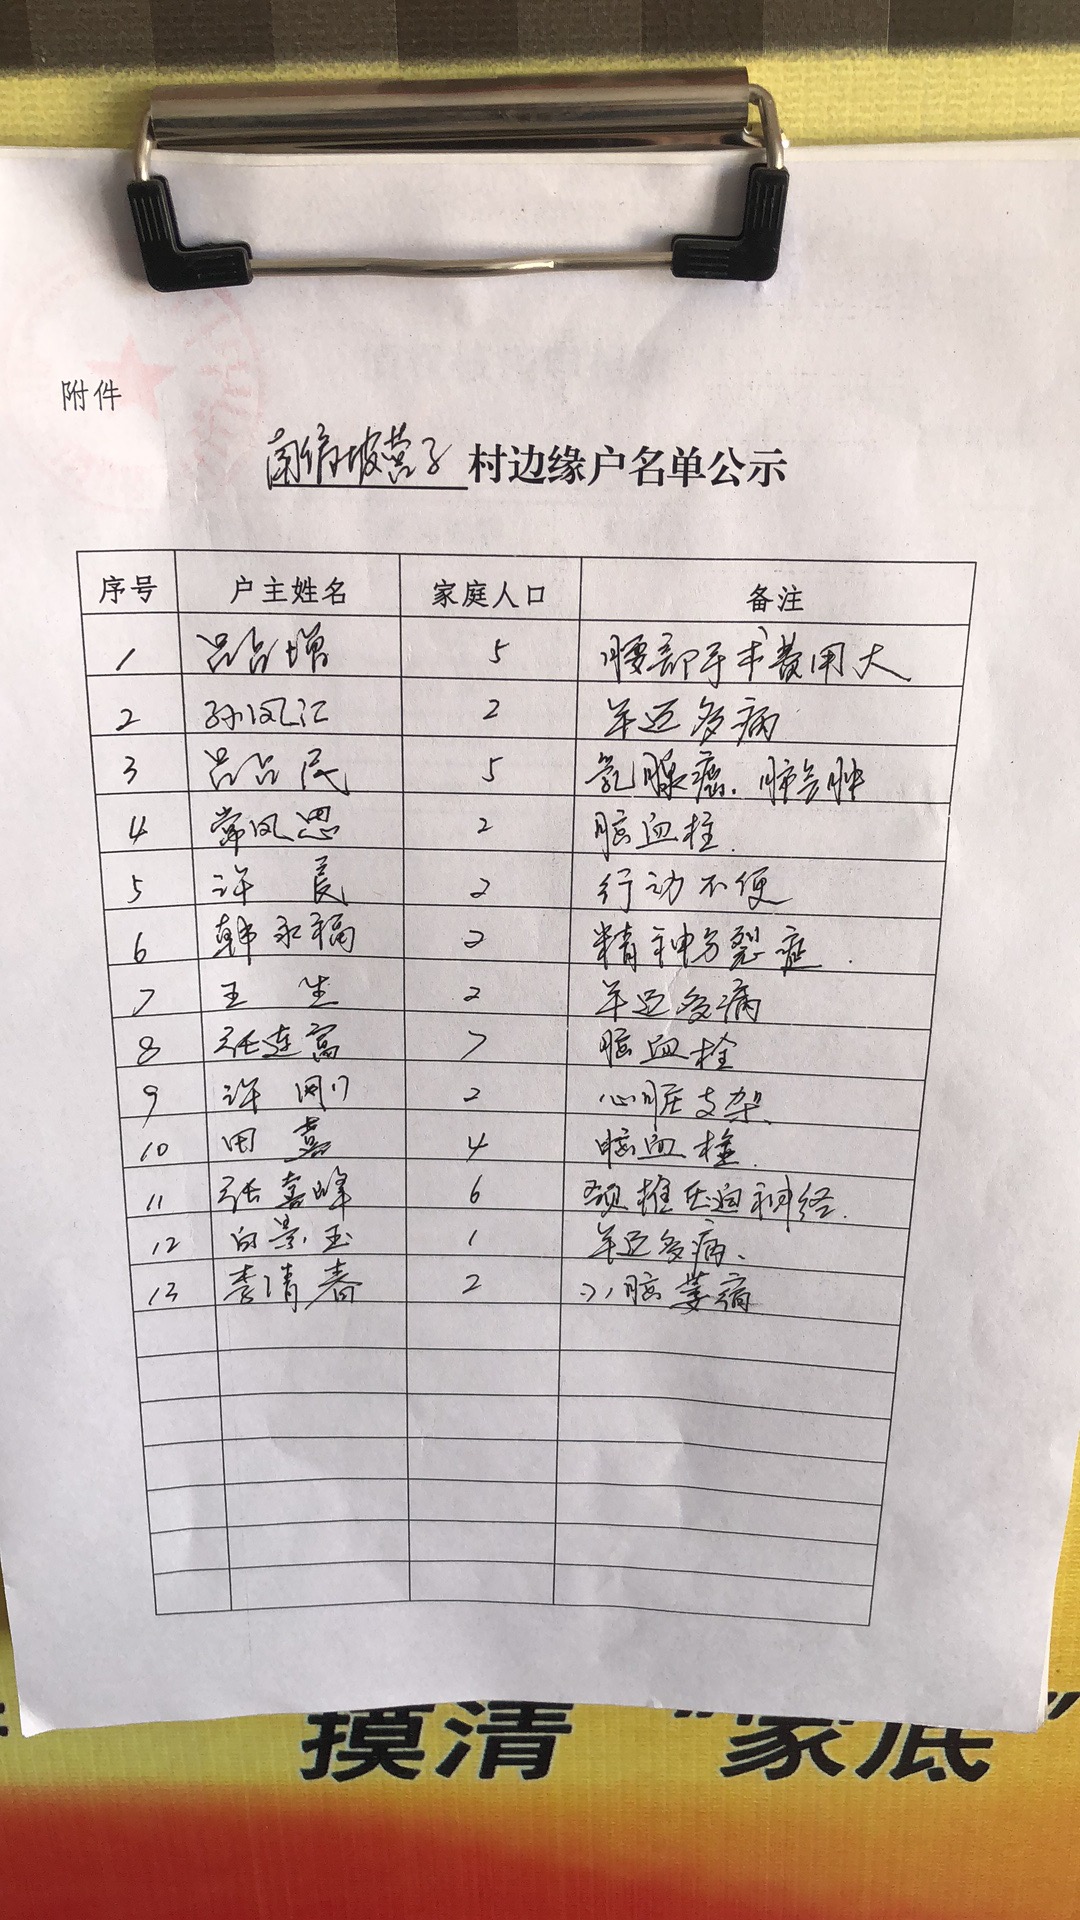 附件
南 坡营子 村边缘户名单公示
序号 户主姓名 家庭人口 备注
1 吕占增 5 腰部手术费用大
2 孙凤江 2 年迈多病
3 吕占民 5 乳腺癌. 肺气肿
4 常凤恩 2 脑血栓.
5 许 良 2 行动不便
6 韩永福 2 精神分裂症.
7 王 生 2 年迈多病
8 张连富 7 脑血栓
9 许 刚 2 心脏支架
10 田 嘉 4 脑血栓.
11 张嘉峰 6 颈椎压迫神经.
12 白景玉 1 年迈多病.
13 李清春 2 小脑萎缩
摸清“家底”